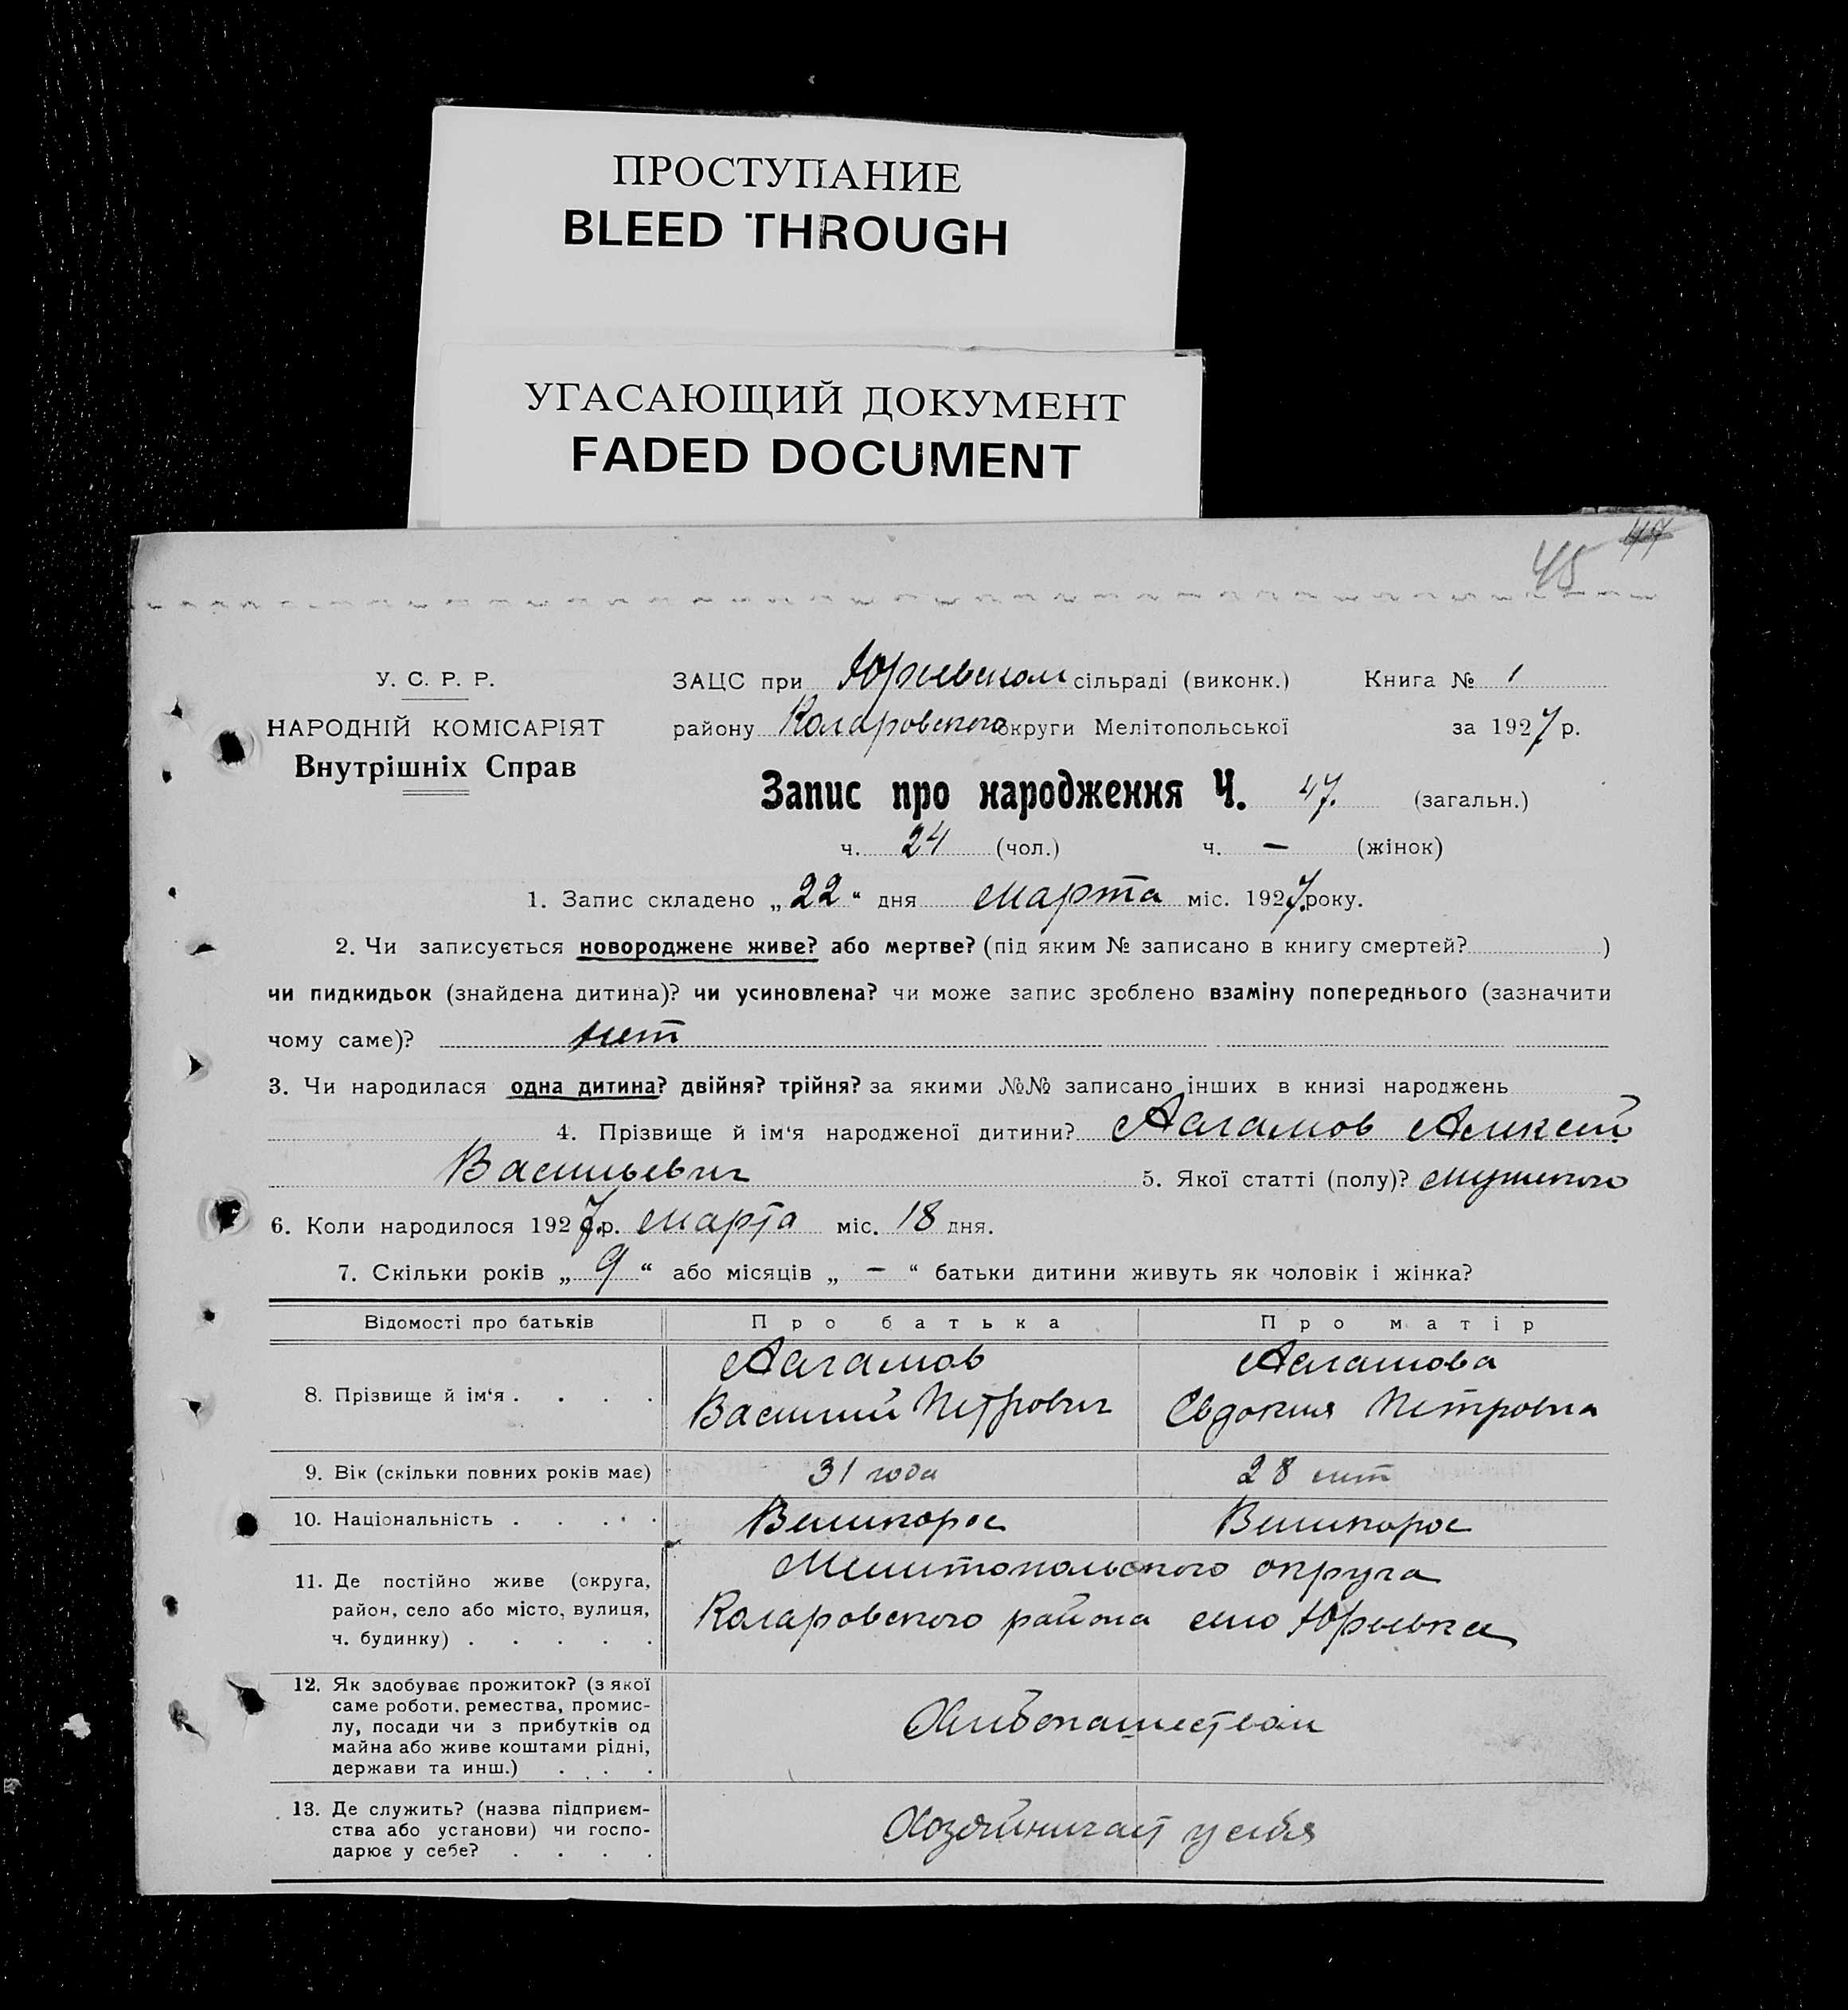 ПРОСТУПАНИЕ
BLEED THROUGH
УГАСАЮЩИЙ ДОКУМЕНТ
FADED DOCUMENT
45 47
У. С. Р. Р.
НАРОДНІЙ КОМІСАРІЯТ
Внутрішніх Справ
ЗАЦС при Юрьевском сільраді (виконк.) Книга № 1
району Коларовского округи Мелітопольської за 1927 р.
Запис про народження Ч. 47. (загальн.)
ч. 24 (чол.) ч. — (жінок)
1. Запис складено „22“ дня марта міс. 1927 року.
2. Чи записується новороджене живе? або мертве? (під яким № записано в книгу смертей? )
чи пидкидьок (знайдена дитина)? чи усиновлена? чи може запис зроблено взаміну попереднього (зазначити
чому саме)? нет
3. Чи народилася одна дитина? двійня? трійня? за якими №№ записано інших в книзі народжень
4. Прізвище й ім‘я народженої дитини? Алексей
Васильевич 5. Якої статті (полу)? мужского
6. Коли народилося 1927 р. марта міс. 18 дня.
7. Скільки років „ 9 “ або місяців „ — “ батьки дитини живуть як чоловік і жінка?
Відомості про батьків Про батька Про матір
8. Прізвище й ім‘я . . . .
Василий Петрович Евдокия Петровна
9. Вік (скільки повних років має) 31 года 28 лет
10. Національність . . . . Великорос Великорос
11. Де постійно живе (округа,
район, село або місто, вулиця,
ч. будинку) . . . . .
Мелитопольского округа
Коларовского района село Юрьевка
12. Як здобуває прожиток? (з якої
саме роботи, ремества, промис-
лу, посади чи з прибутків од
майна або живе коштами рідні,
держави та инш.) . . .
Хлебопашеством
13. Де служить? (назва підприєм-
ства або установи) чи госпо-
дарює у себе? . . . .
Хозяйничает у себя